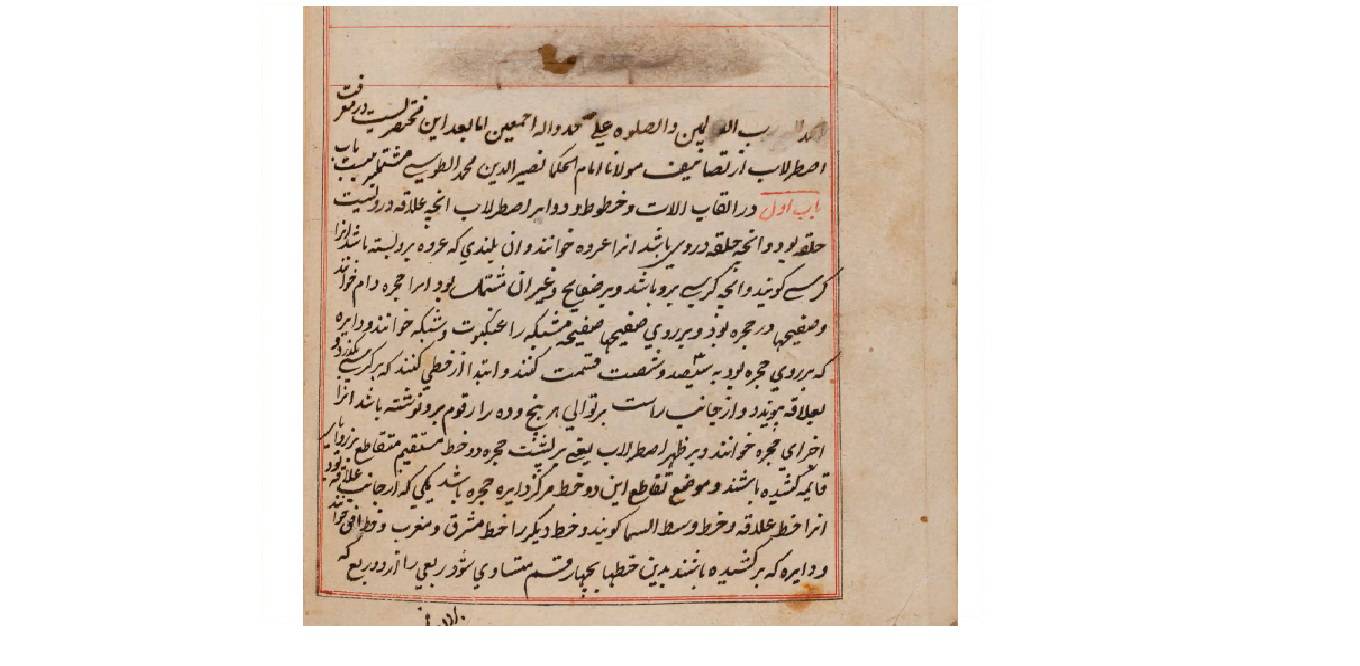 الحمد لله رب العالمین والصلوه علی محمد واله اجمعین اما بعد این مختصریست در معرفت
اصطرلاب از تصانیف مولانا امام الحکما نصیر الدین محمد الطوسی مشتملبر بیست باب
باب اول در القاب الات و خطوط و دوایر اصطرلاب انچه علاقه در ویست
حلقه بود و انچه حلقه در وی باشد انرا عروه خوانند و ان بلندی که عروه برو بسته باشد انرا
کرسی کویند و انچه کرسی برو باشد و بر صفایح و غیر ان مشتمل بود انرا حجره و ام خوانند
و صفیحها در حجره بود و بر روی صفیحها صفیحه مشبکه را عنکبوت و شبکه خوانند و دایره
که بر روی حجره بود به سیصد و شصت قسمت کنند و ابتدا از خطی کنند که بر کرسی بکذرد و
بعلاقه پیوندد و از جانب راست بر توالی هر پنج و ده را رقوم برو نوشته باشد انرا
اجزای حجره خوانند و بر ظهر اصطرلاب یعنی بر پشت حجره دو خط مستقیم متقاطع بر زوایاء
قایمه کشیده باشند و موضع تقاطع این دو خط مرکز دایره حجره باشد یکی که از جانب علاقه بود
انرا خط علاقه و خط وسط السما کویند و خط دیکر را خط مشرق و مغرب و خط افق خوانند
و دایره که بر کشیده باشند بدین خطها بچهار قسم متساوی شود ربعی را از دو ربع که